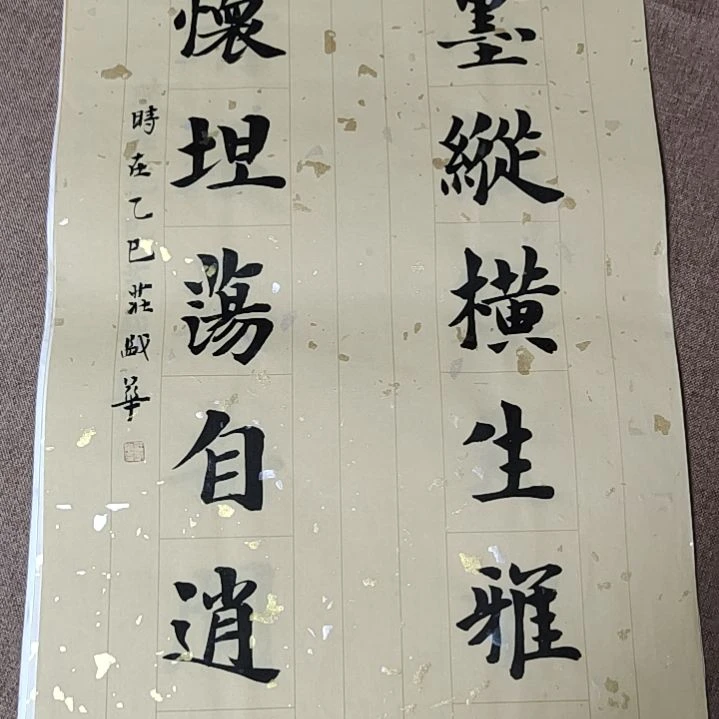 墨縱橫生雅
懷坦蕩自逍
時在乙巳莊盛華